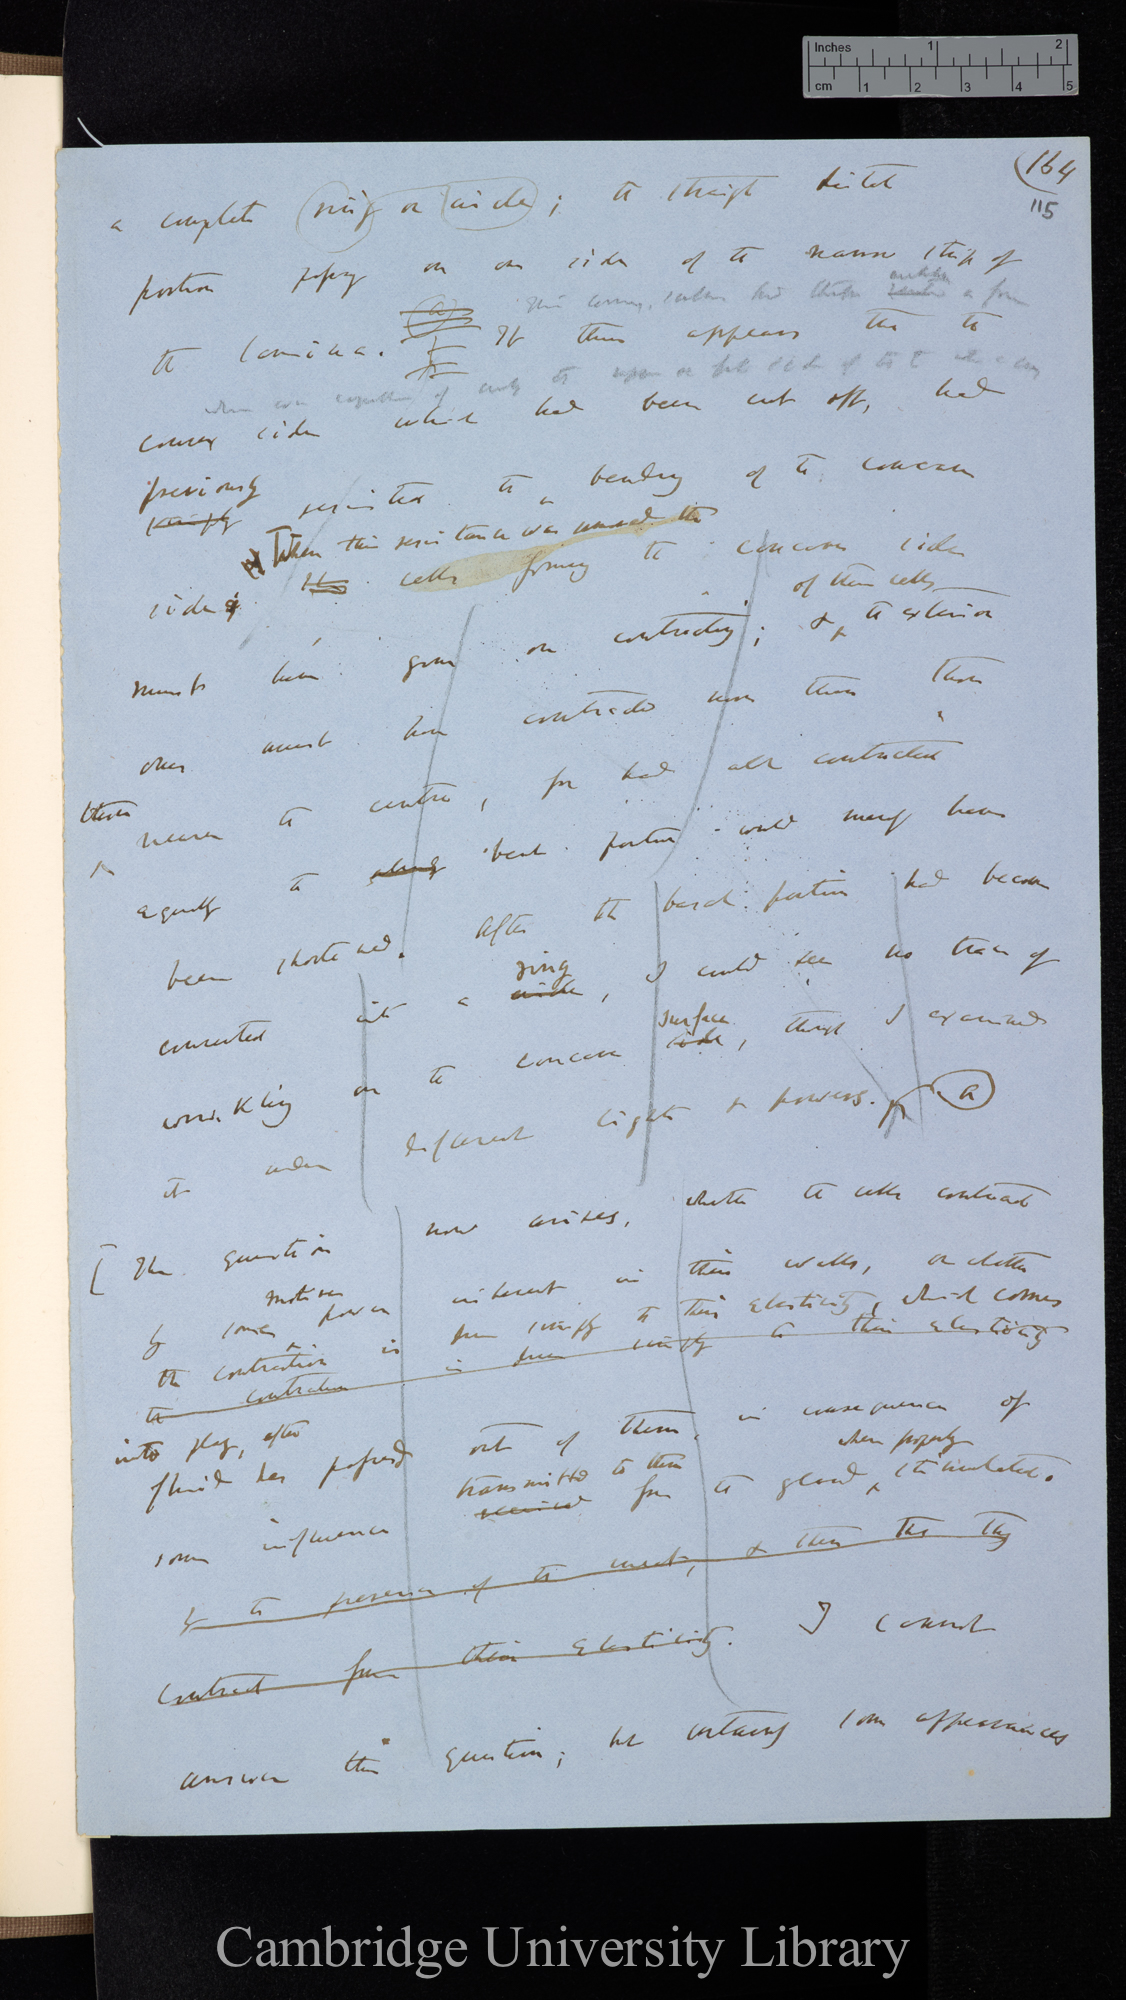 Inches 1 2
cm 1 2 3 4 5
(164
115
a complete ring or circle; the straight distal
portion passing on one side of the narrow strip of
the lamina. (a) It thus appears that the
convex side which had been cut off, had
previously simply resisted the bending of the concave
When this resistance was removed the
side & the cells forming the concave side
of these cells
must have gone on contracting; & the exterior
ones must have contracted more than those
them
nearer the centre, for had all contracted
equally the along bent portion would merely have
been shortened. After the basal portion had become
ring
converted into a circle, I could see no trace of
surface
wrinkling on the concave side, though I examined
it under different lights & powers. (a)
[The question now arises, whether the cells contract
motive
by some power inherent in their walls, or whether
the contraction is due simply to their elasticity, which comes
the contraction is due simply to their elasticity
into play, after
fluid has passed out of them, in consequence of
transmitted to them when properly
some influence received from the gland stimulated.
by the presence of the insect, & then that they
contract from their elasticity. I cannot
answer this question; but certainly some appearances
Cambridge University Library